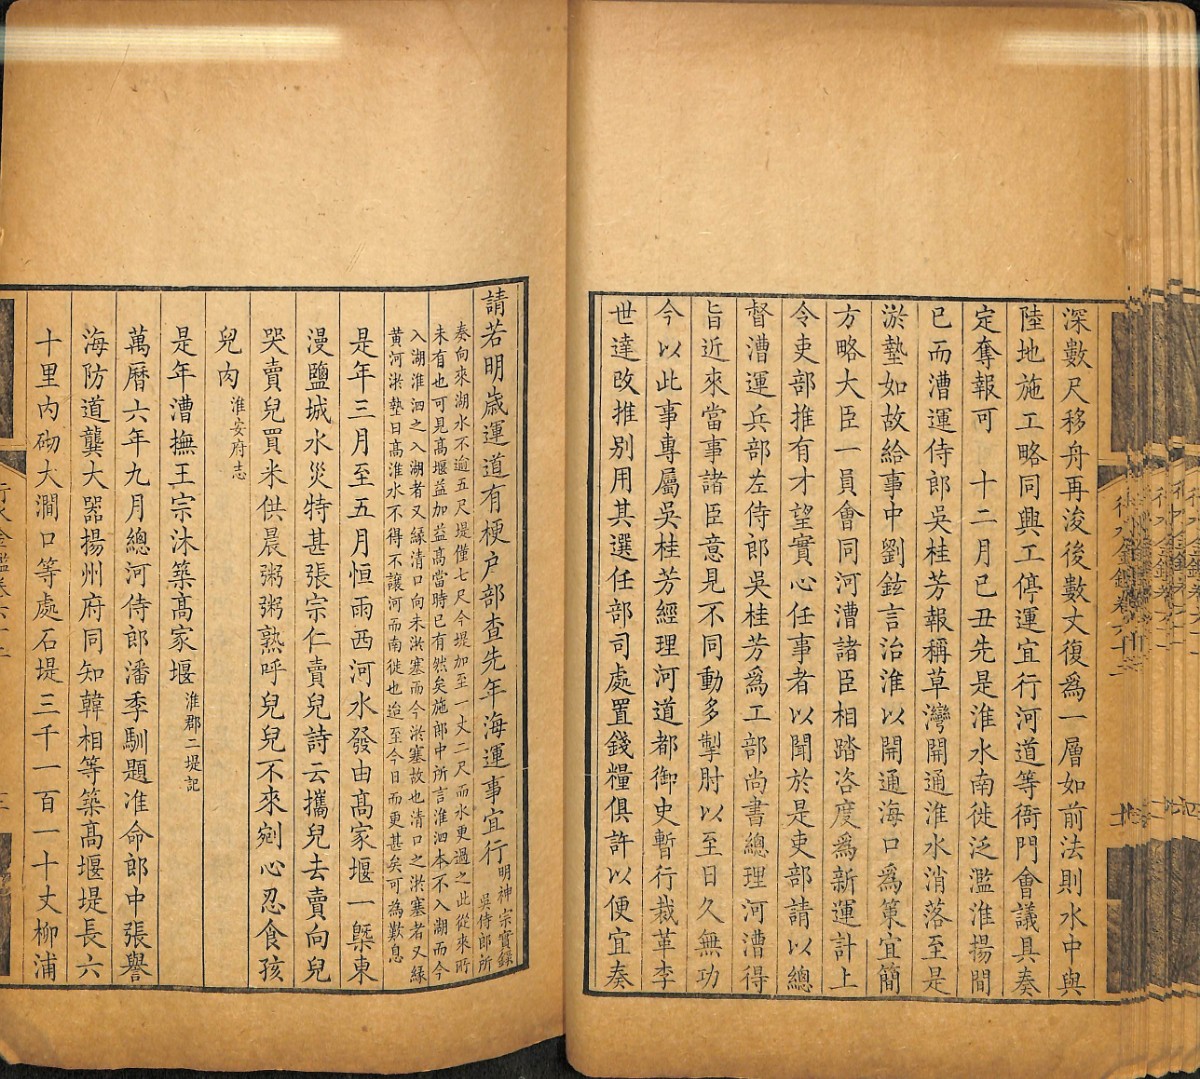 深數尺移舟再浚後數丈復爲一層如前法則水中與
陸地施工略同興工停運宜行河道等衙門會議具奏
定奪報可　十二月己丑先是淮水南徙泛濫淮揚間
已而漕運侍郎吳桂芳報稱草灣開通淮水消落至是
淤墊如故給事中劉鉉言治淮以開通海口爲策宜簡
方略大臣一員會同河漕諸臣相踏咨度爲新運計上
令吏部推有才望實心任事者以聞於是吏部請以總
督漕運兵部左侍郎吳桂芳爲工部尚書總理河漕得
旨近來當事諸臣意見不同動多掣肘以至日久無功
今以此事專屬吳桂芳經理河道都御史暫行裁革李
世達改推別用其選任部司處置錢糧俱許以便宜奏
請若明歲運道有梗户部查先年海運事宜行明神宗實錄
吳侍郎所
奏向來湖水不逾五尺堤僅七尺今堤加至一丈二尺而水更過之此從來所
未有也可見高堰益加益高當時已有然矣施郎中所言淮泗本不入湖而今
入湖淮泗之入湖者又緣清口向未淤塞而今淤塞故也清口之淤塞者又緣
黃河淤墊日高淮水不得不讓河而南徙也迨至今日而更甚矣可為歎息
是年三月至五月恒雨西河水發由高家堰一槩東
漫鹽城水災特甚張宗仁賣兒詩云攜兒去賣向兒
哭賣兒買米供晨粥粥熟呼兒兒不來剜心忍食孩
兒肉淮安府志
是年漕撫王宗沐築高家堰淮郡二堤記
萬曆六年九月總河侍郎潘季馴題准命郎中張譽
海防道龔大器揚州府同知韓相等築高堰堤長六
十里內砌大澗口等處石堤三千一百一十丈柳浦